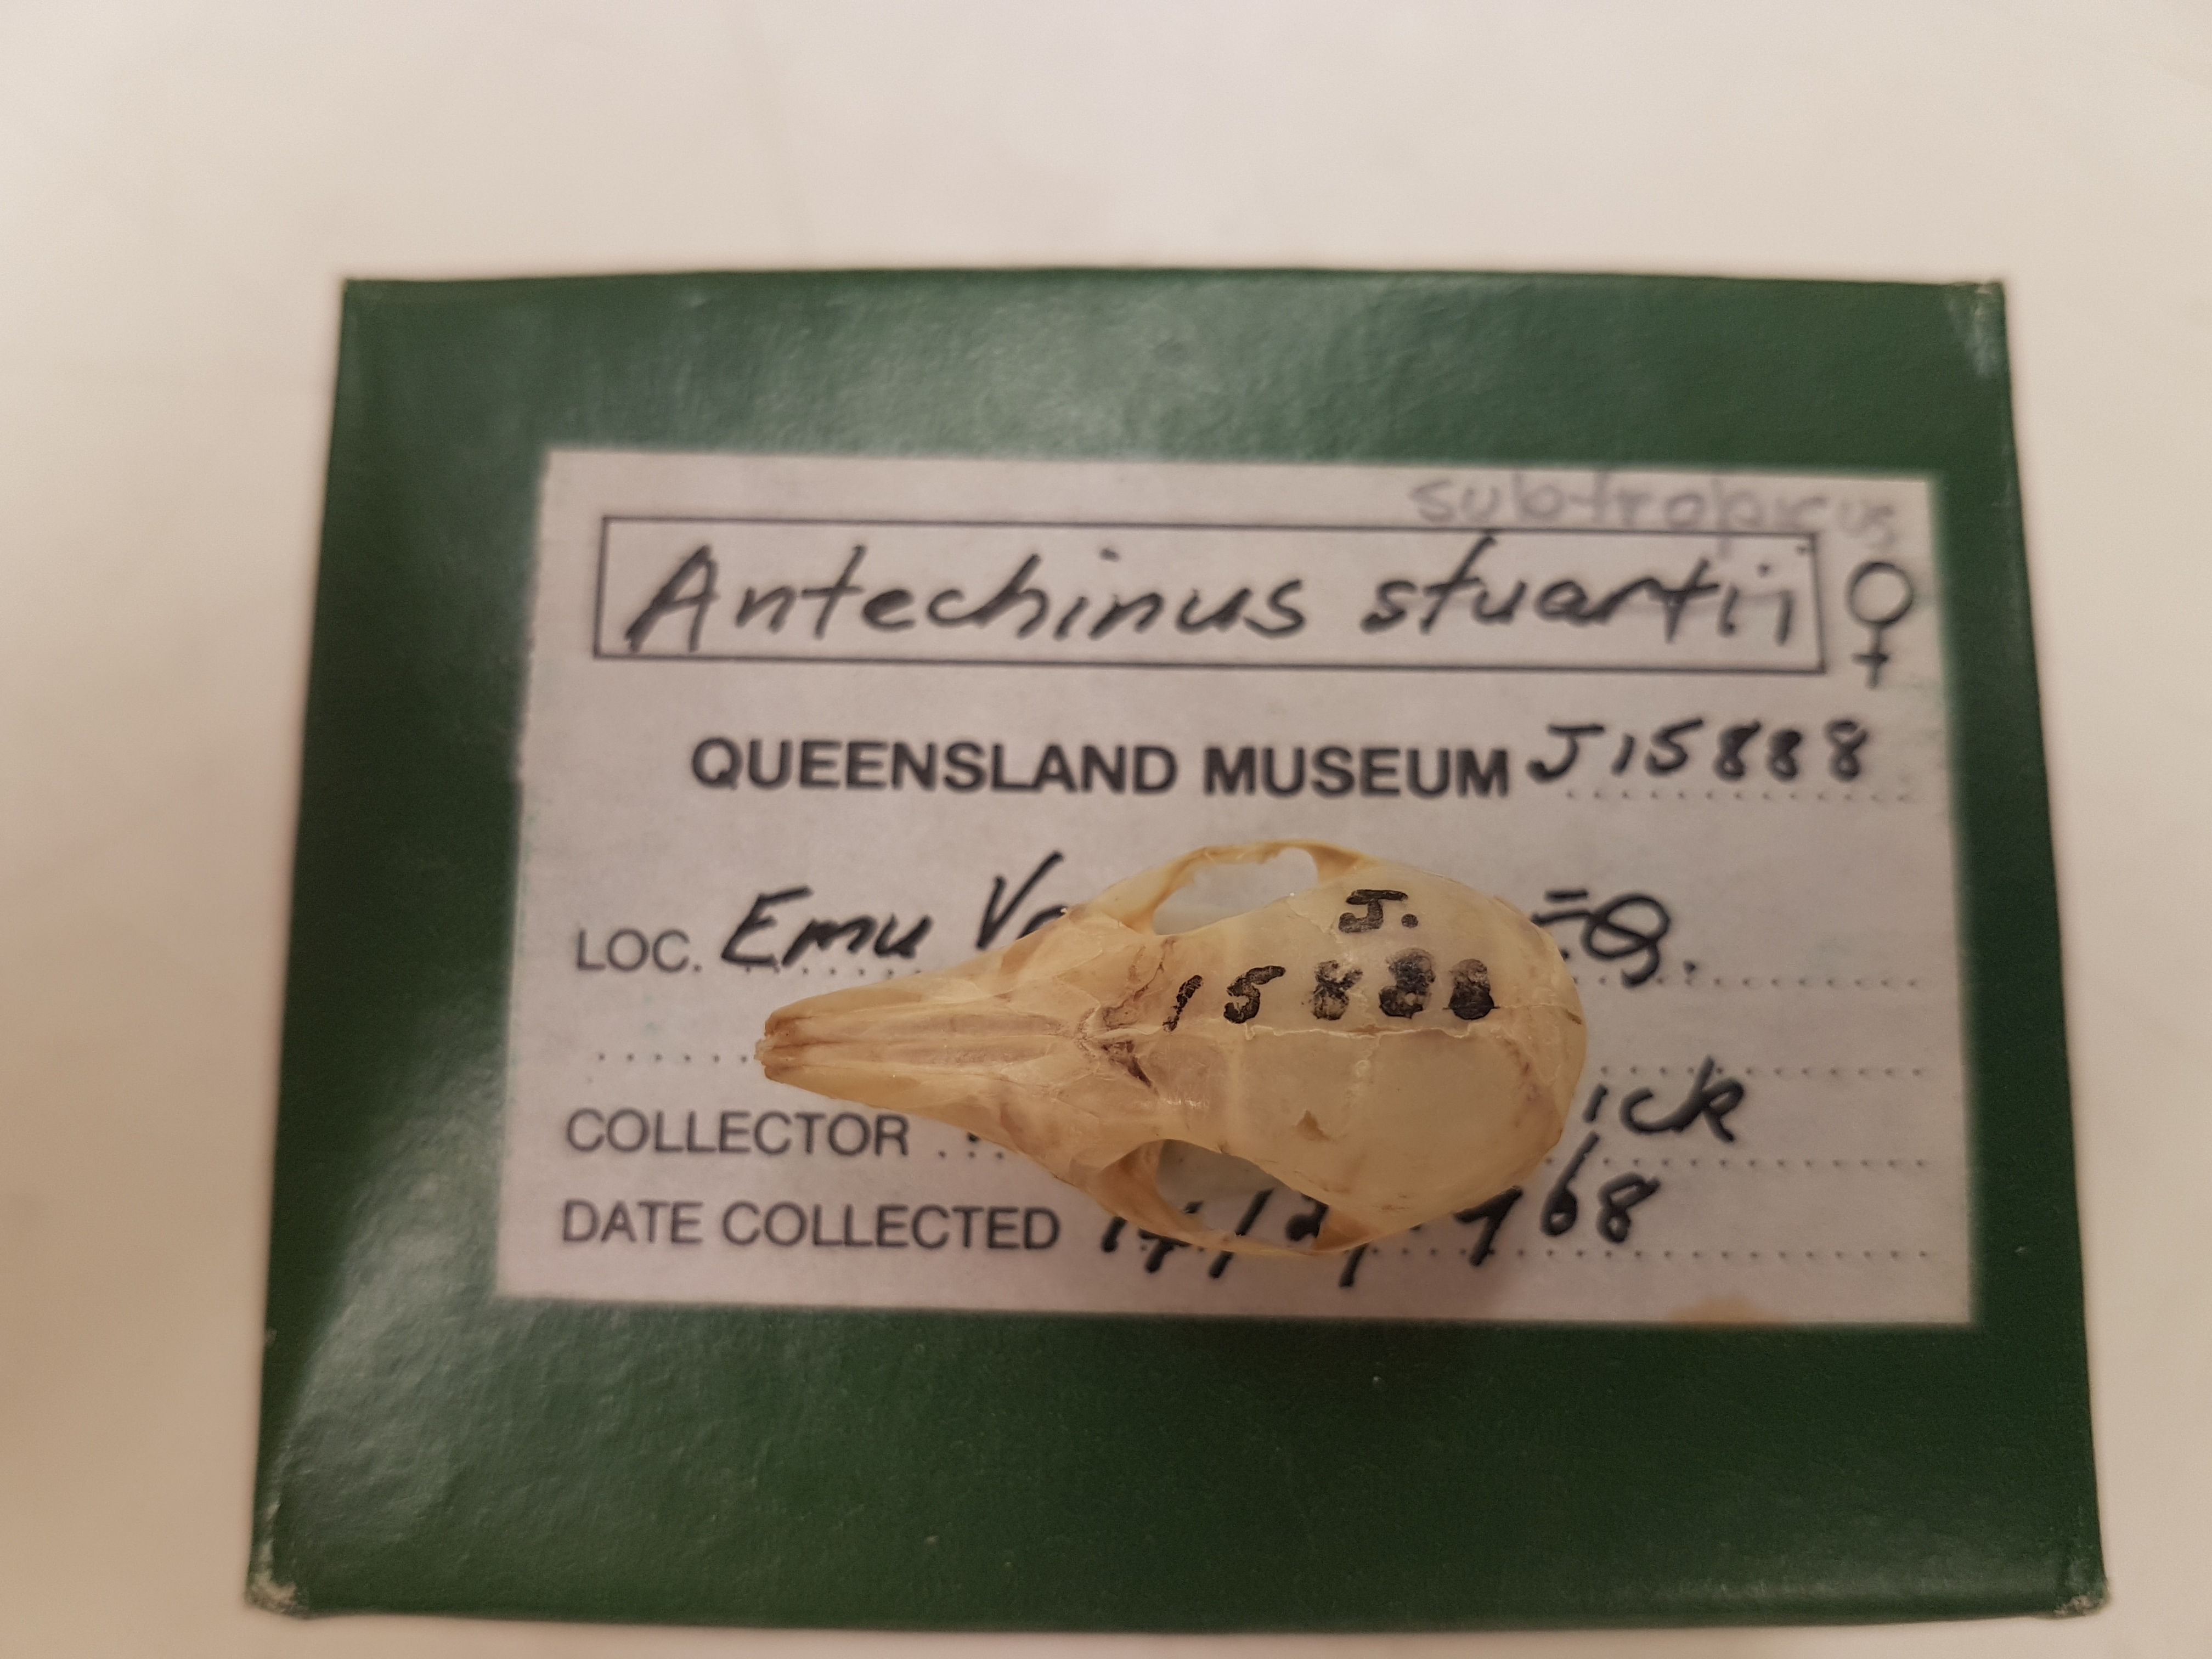 subtropicus
Antechinus stuartii ♀
QUEENSLAND MUSEUM J15888
LOC. Emu
COLLECTOR
DATE COLLECTED
J.
15888